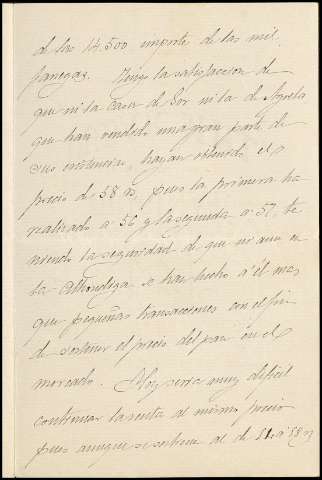 de las 14.500 importe de las mil
fanegas. Tengo la satisfaccion de
que ni la Casa de Sor ni la de Agrela
que han vendido una gran parte de
sus existencias, hayan obtenido el
precio de 58 rs, pues la primera ha
realizado a 56 y la segunda a 57, te
niendo la seguridad de que ni aun en
la Alhondiga se han hecho a él mas
que pequeñas transacciones con el fin
de sostener el precio del pan en el
mercado. Hoy seria muy dificil
continuar la venta al mismo precio
pues aunque se sostiene el de